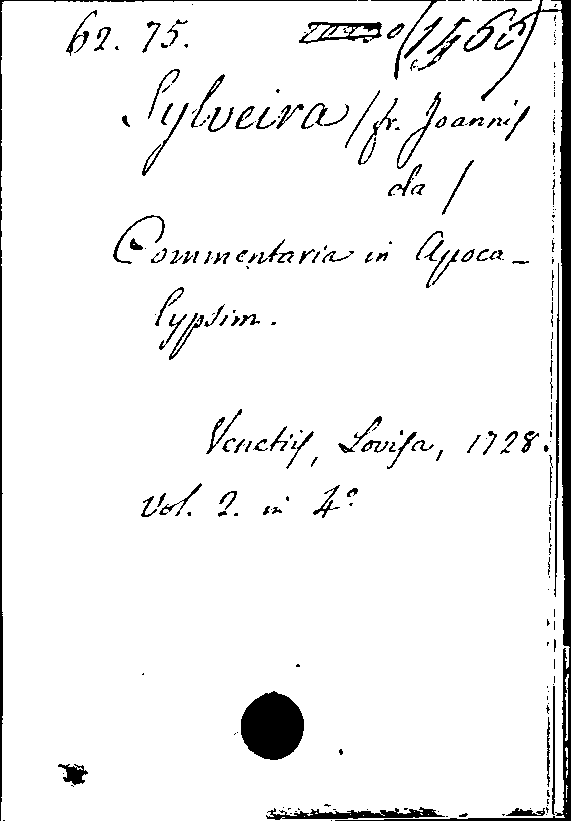 62. 75. (1566)
Sylveira / fr. Joannis
da /
Commentaria in Apoca-
lypsim.
Venetiis, Lovisa, 1728.
Vol. 2. in 4°